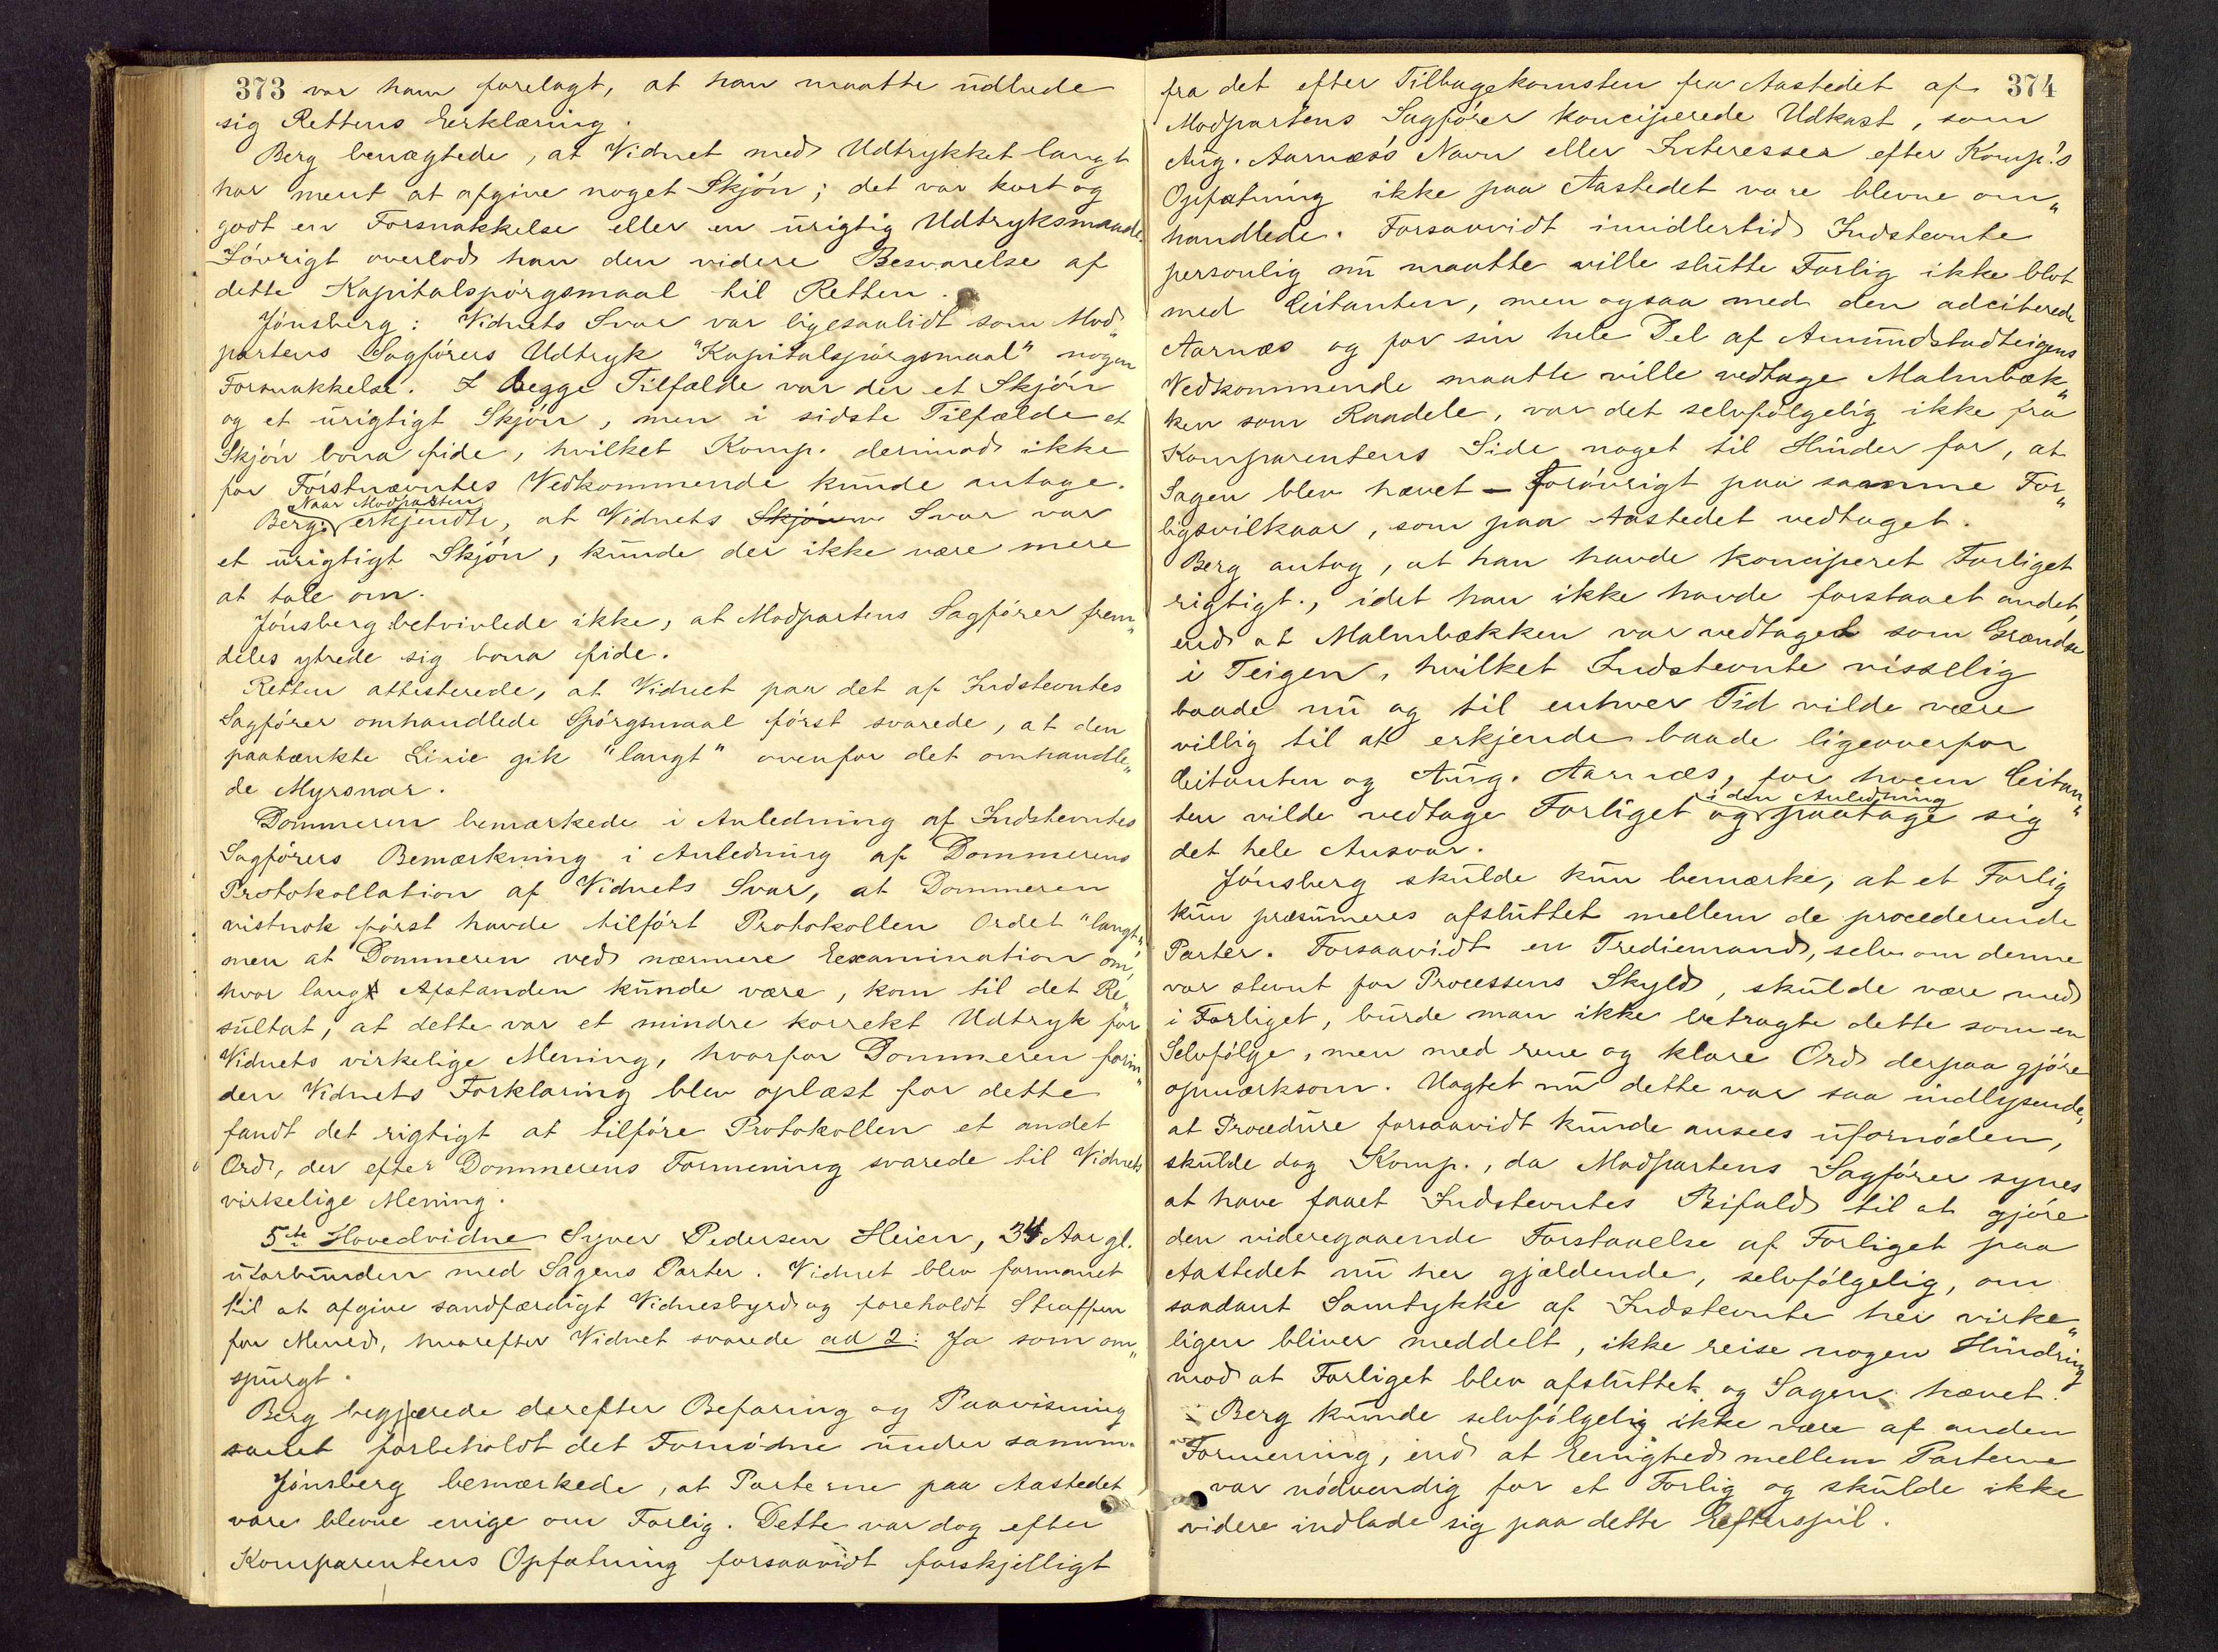 373 var ham forelagt, at han maatte udbede
sig Rettens Erklæring.
Berg benægtede, at Vidnet med Udtrykket langt
har ment at afgive noget Skjön; det var kort og
godt en Forsnakkelse eller en urigtig Udtryksmaade.
Iövrigt overlod han den videre Besvarelse af
dette Kapitalspörgsmaal til Retten.
Jönsberg: Vidnets Svar var ligesaalidt som Mod„
partens Sagförers Udtryk "Kapitalspörgsmaal" nogen
Forsnakkelse. I begge Tilfælde var der et Skjön
og et urigtigt Skjön, men i sidste Tilfælde et
Skjön bona fide, hvilket Komp. derimod ikke
for Förstnævntes Vedkommende kunde antage.
Naar Modparten
Berg: erkjendte, at Vidnets Skjönn Svar var
et urigtigt Skjön, kunde der ikke være mere
at tale om.
Jönsberg betvivlede ikke, at Modpartens Sagförer frem„
deles ytrede sig bona fide.
Retten attesterede, at Vidnet paa det af Indstevntes
Sagförer omhandlede Spörgsmaal först svarede, at den
paatænkte Linie gik "langt" ovenfor det omhandle„
de Myrsnar.
Dommeren bemærkede i Anledning af Indstevntes
Sagförers Bemærkning i Anledning af Dommerens
Protokollation af Vidnets Svar, at Dommeren
vistnok först havde tilfört Protokollen Ordet "langt",
men at Dommeren ved nærmere Examination om,
hvor langt Afstanden kunde være, kom til det Re„
sultat, at dette var et mindre korrekt Udtryk for
Vidnets virkelige Mening, hvorfor Dommeren forin„
den Vidnets Forklaring blev oplæst for dette
fandt det rigtigt at tilföre Protokollen et andet
Ord, der efter Dommerens Formening svarede til Vidnets
virkelige Mening.
5te Hovedvidne Syver Pedersen Heien, 34 Aar gl.
uforbunden med Sagens Parter. Vidnet blev formanet
til at afgive sandfærdigt Vidnesbyrd og foreholdt Straffen
for Mened, hvorefter Vidnet svarede ad 2: Ja som om„
spurgt.
Berg begjærede derefter Befaring og Paavisning
samt forbeholdt det Fornödne under samme.
Jönsberg bemærkede, at Parterne paa Aastedet
vare blevne enige om Forlig. Dette var dog efter
Komparentens Opfatning forsaavidt forskjelligt
374
fra det efter Tilbagekomsten fra Aastedet af
Modpartens Sagförer konciperede Udkast, som
Aug. Aarnæs's Navn eller Interesser efter Komp.'s
Opfatning ikke paa Aastedet vare blevne om„
handlede. Forsaavidt imidlertid Indstevnte
personlig nu maatte ville slutte Forlig ikke blot
med Citanten, men ogsaa med den adciterede
Aarnæs og for sin hele Del af Amundstadteigens
Vedkommende maatte ville vedtage Malmbæk„
ken som Raadele, var det selvfölgelig ikke fra
Komparentens Side noget til Hinder for, at
Sagen blev hævet – Forövrigt paa samme For„
ligsvilkaar, som paa Aastedet vedtaget.
Berg antog, at han havde konciperet Forliget
rigtigt, idet han ikke havde forstaaet andet,
end at Malmbækken var vedtaget som Grændse
i Teigen, hvilket Indstevnte visselig
baade nu og til enhver Tid vilde være
villig til at erkjende baade ligeoverfor
Citanten og Aug. Aarnæs, for hvem Citan„
i den Anledning
ten vilde vedtage Forliget og paatage sig
det hele Ansvar.
Jönsberg skulde kun bemærke, at et Forlig
kun præsumeres afsluttet mellem de procederende
Parter. Forsaavidt en Trediemand, selv om denne
var stevnt for Processens Skyld, skulde være med
i Forliget, burde man ikke betragte dette som en
Selvfölge, men med rene og klare Ord derpaa gjöre
opmærksom. Uagtet nu dette var saa indlysende,
at Procedure forsaavidt kunde ansees ufornöden,
skulde dog Komp., da Modpartens Sagförer synes
at have faaet Indstevntes Bifald til at gjöre
den videregaaende Forstaaelse af Forliget paa
Aastedet nu her gjældende, selvfölgelig, om
saadant Samtykke af Indstevnte her virke„
ligen bliver meddelt, ikke reise nogen Hindring
mod at Forliget blev afsluttet og Sagen hævet.
Berg kunde selvfölgelig ikke være af anden
Formening, end at Enighed mellem Parterne
var nödvendig for et Forlig og skulde ikke
videre indlade sig paa dette Efterspil.